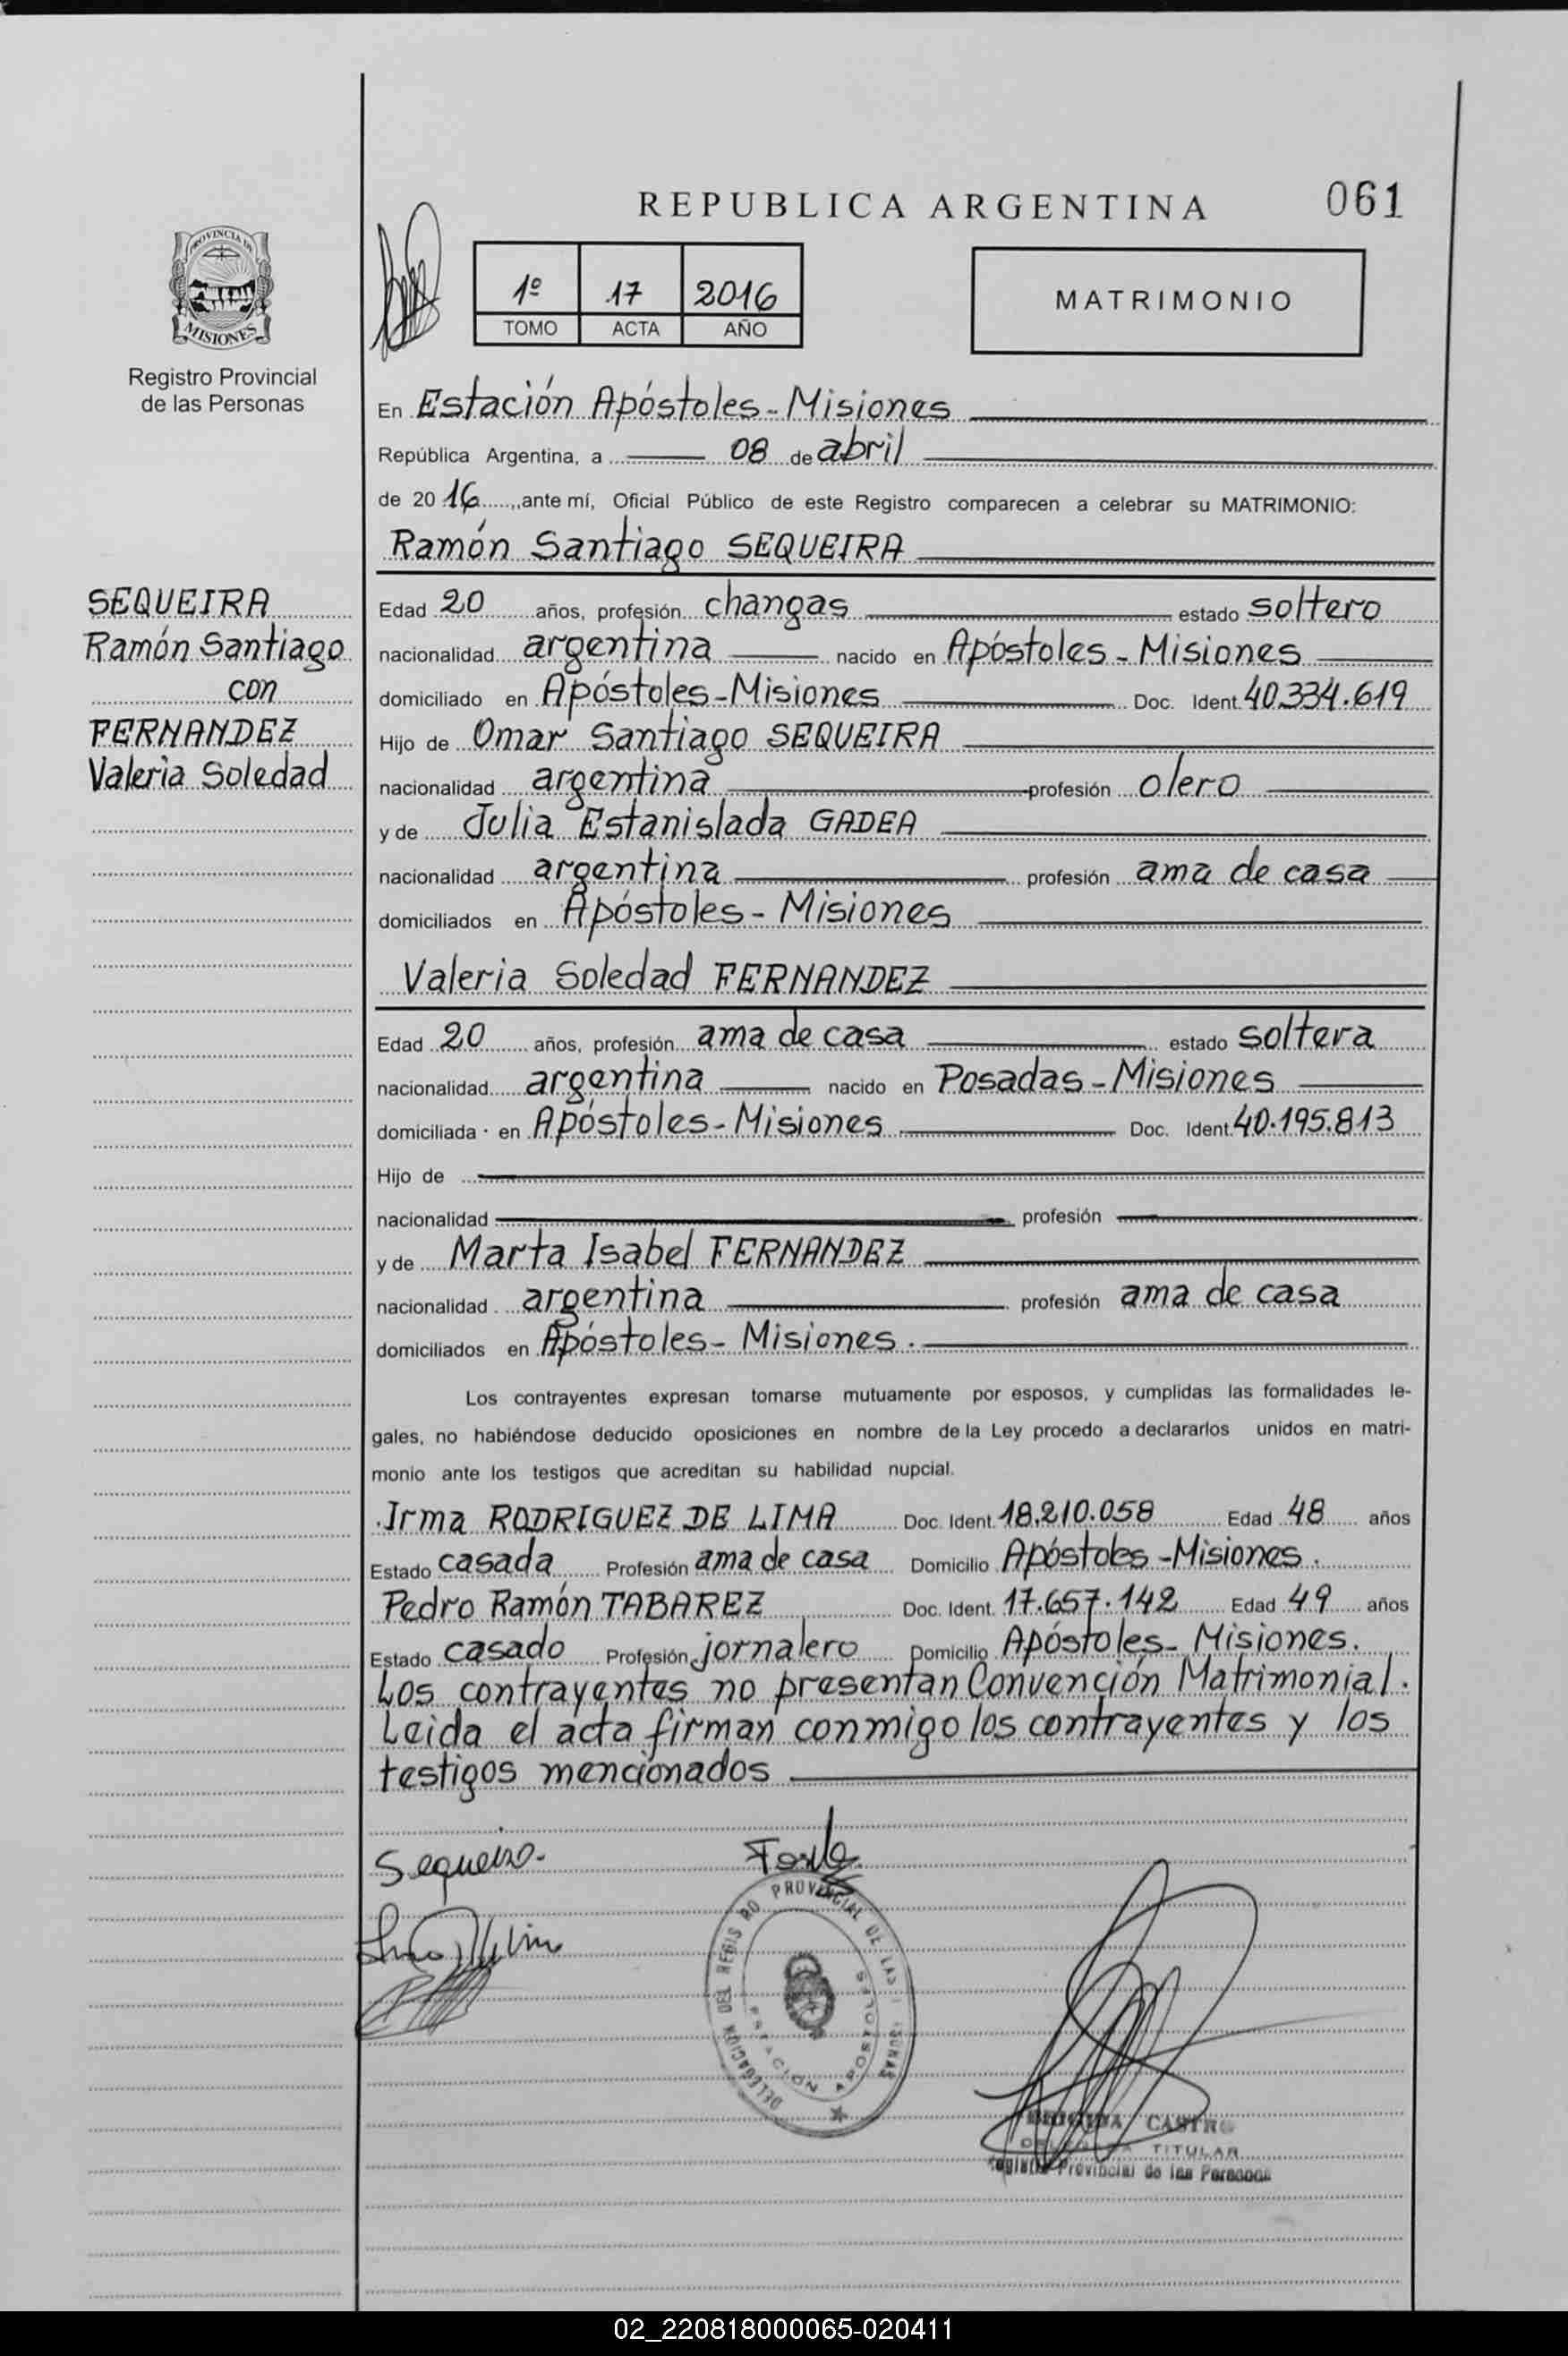 REPUBLICA ARGENTINA
061
PROVINCIA DE
MISIONES
Registro Provincial
de las Personas
1º 17 2016
TOMO ACTA AÑO
MATRIMONIO
En Estación Apóstoles - Misiones
República Argentina, a 08 de abril
de 2016, ante mí, Oficial Público de este Registro comparecen a celebrar su MATRIMONIO:
Ramón Santiago SEQUEIRA
SEQUEIRA
Ramón Santiago
con
FERNANDEZ
Valeria Soledad
Edad 20 años, profesión changas estado soltero
nacionalidad argentina nacido en Apóstoles - Misiones
domiciliado en Apóstoles - Misiones Doc. Ident. 40.334.619
Hijo de Omar Santiago SEQUEIRA
nacionalidad argentina profesión olero
y de Julia Estanislada GADEA
nacionalidad argentina profesión ama de casa
domiciliados en Apóstoles - Misiones
Valeria Soledad FERNANDEZ
Edad 20 años, profesión ama de casa estado soltera
nacionalidad argentina nacido en Posadas - Misiones
domiciliada en Apóstoles - Misiones Doc. Ident. 40.195.813
Hijo de
nacionalidad profesión
y de Marta Isabel FERNANDEZ
nacionalidad argentina profesión ama de casa
domiciliados en Apóstoles - Misiones.
Los contrayentes expresan tomarse mutuamente por esposos, y cumplidas las formalidades le-
gales, no habiéndose deducido oposiciones en nombre de la Ley procedo a declararlos unidos en matri-
monio ante los testigos que acreditan su habilidad nupcial.
Irma RODRIGUEZ DE LIMA Doc. Ident. 18.210.058 Edad 48 años
Estado casada Profesión ama de casa Domicilio Apóstoles - Misiones.
Pedro Ramón TABAREZ Doc. Ident. 17.657.142 Edad 49 años
Estado casado Profesión jornalero Domicilio Apóstoles - Misiones.
Los contrayentes no presentan Convención Matrimonial.
Leida el acta firman conmigo los contrayentes y los
testigos mencionados
Sequeira.
DELEGACION DEL REGISTRO PROVINCIAL DE LAS PERSONAS
ESTACION APOSTOLES
CASTRO
TITULAR
Registro Provincial de las Personas
02_220818000065-020411